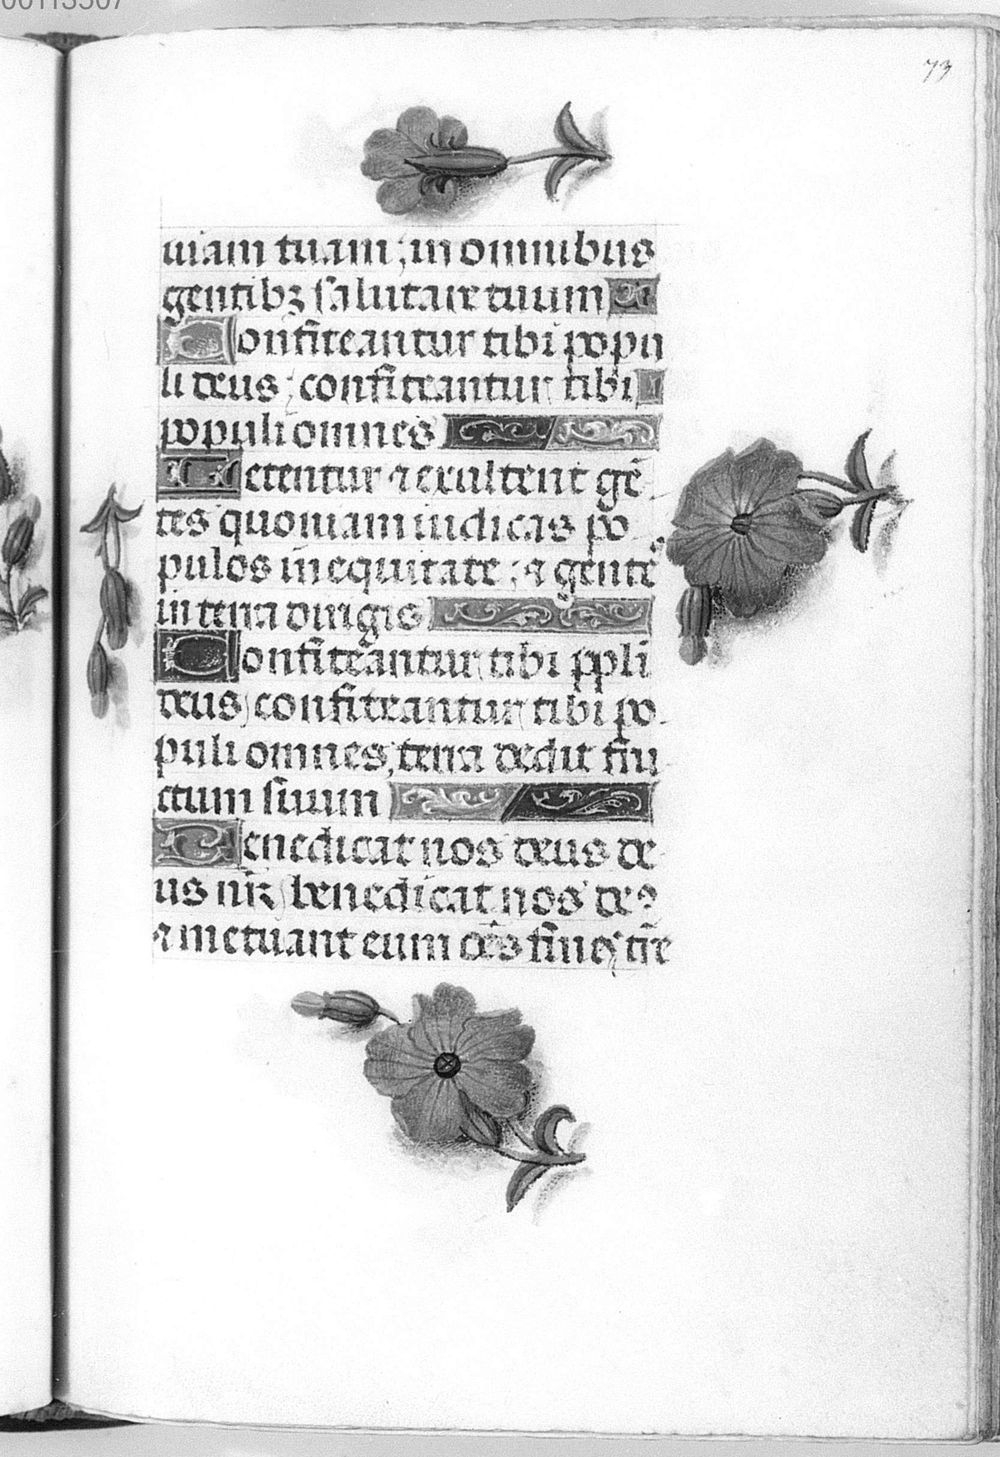 00113507
73
uiam tuam ; in omnibus
gentibꝫ salutare tuum
Confiteantur tibi popu
li deus : confiteantur tibi
populi omnes
Letentur ⁊ exultent gē
tes quoniam iudicas po
pulos in equitate : ⁊ gente
in terra dirigis
Confiteantur tibi ppli
deus confiteantur tibi po
puli omnes, terra dedit fru
ctum suum
Benedicat nos deus de
us nr̄ benedicat nos deꝰ
⁊ metuant eum oēs fines tr̄e